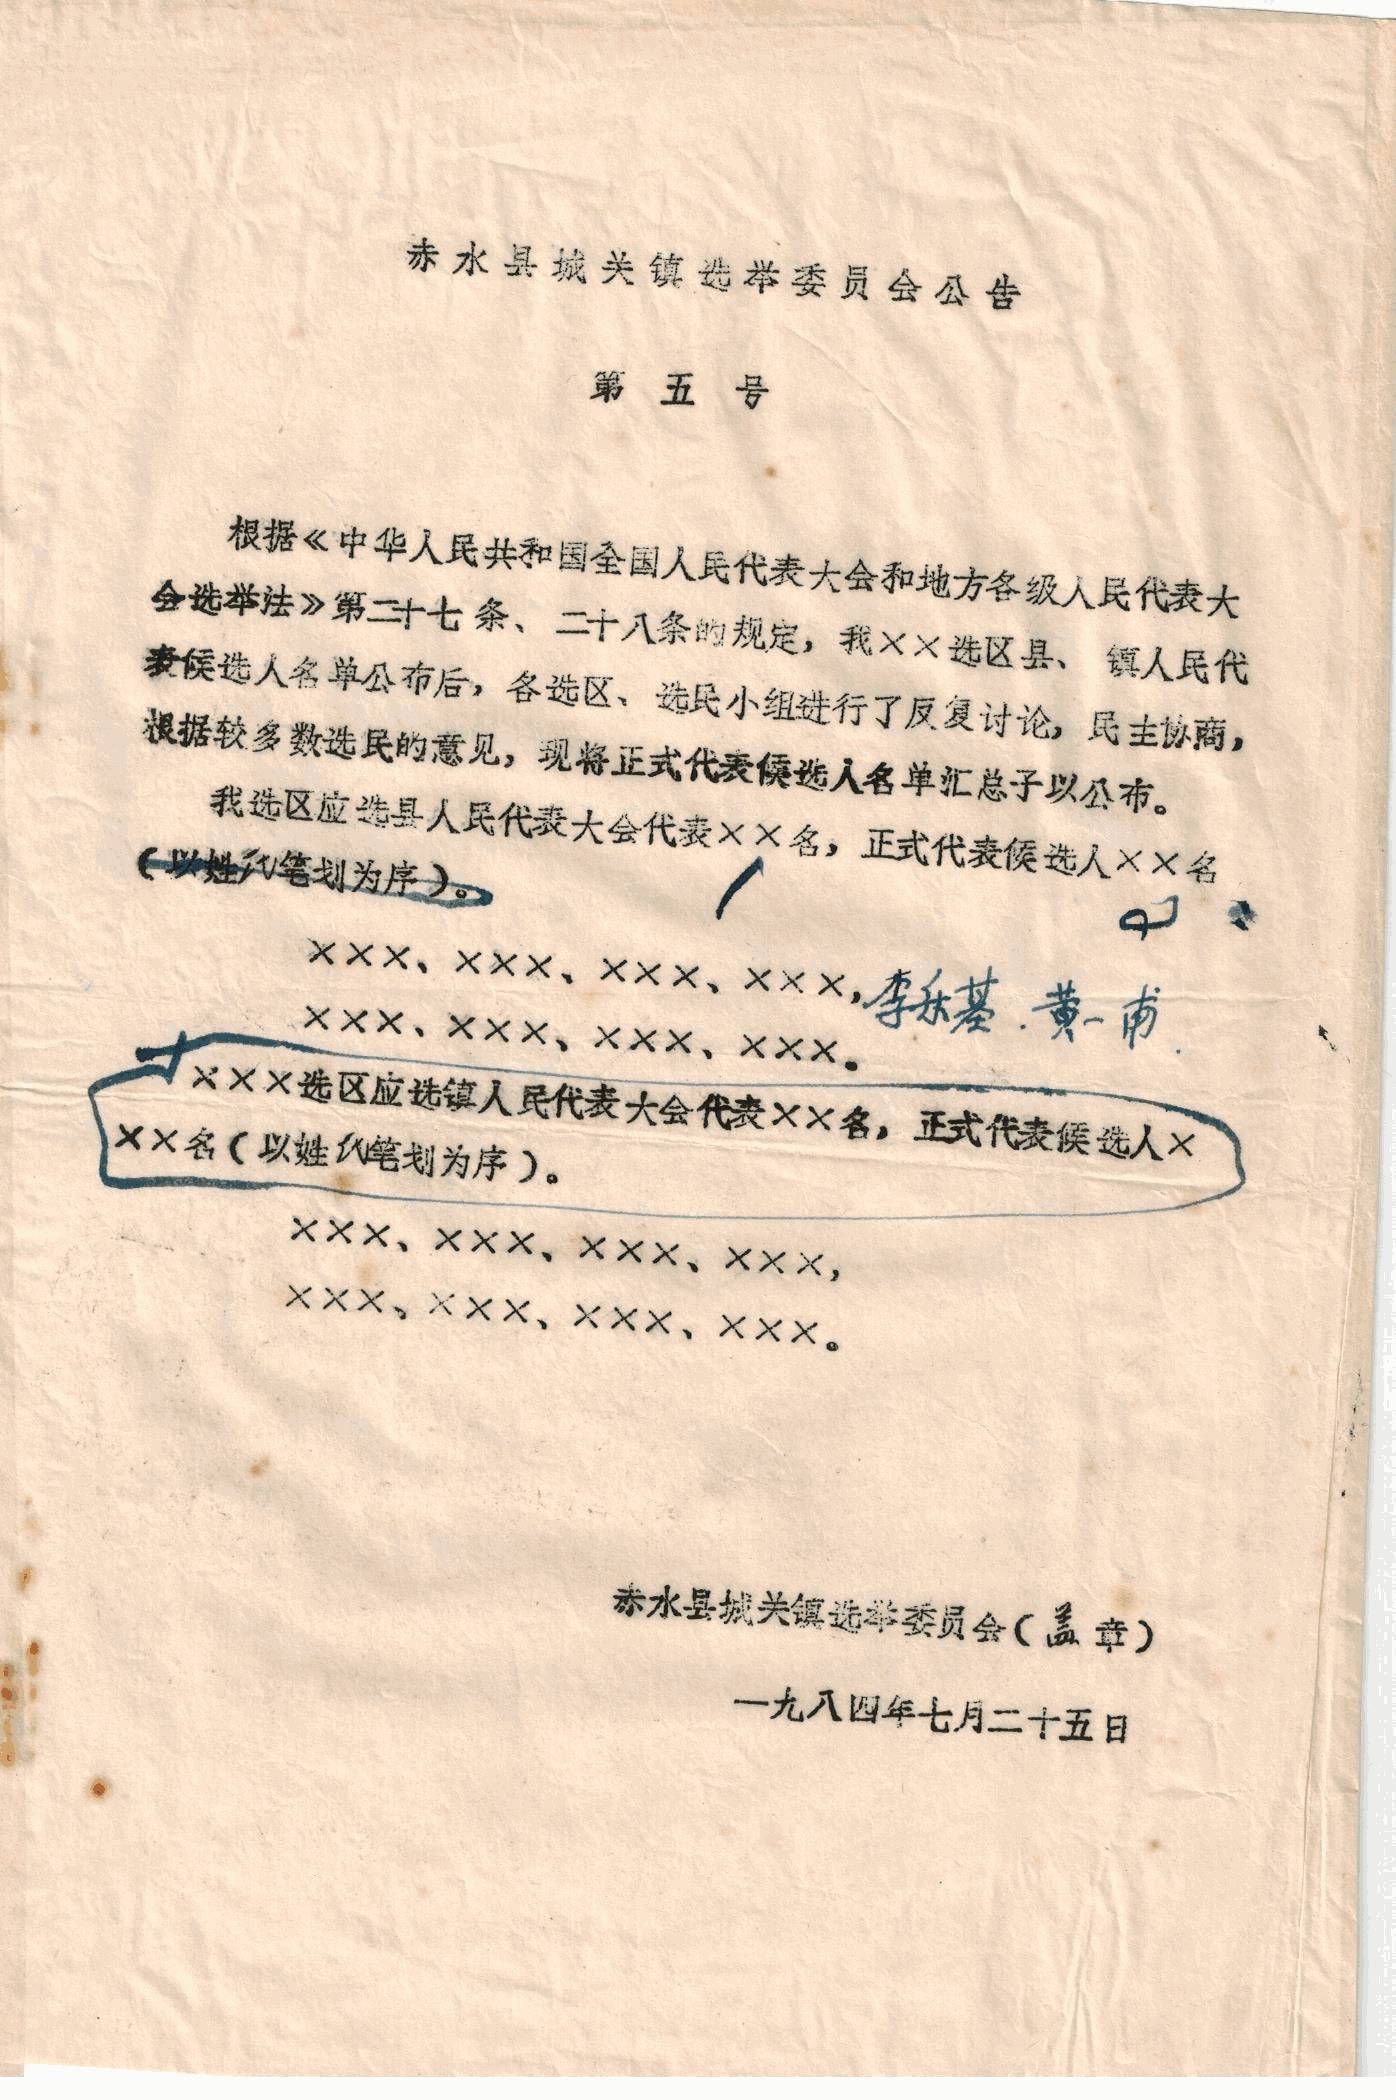 赤水县城关镇选举委员会公告
第五号
根据《中华人民共和国全国人民代表大会和地方各级人民代表大
会选举法》第二十七条、二十八条的规定，我××选区县、镇人民代
表候选人名单公布后，各选区、选民小组进行了反复讨论，民主协商，
根据较多数选民的意见，现将正式代表候选人名单汇总予以公布。
我选区应选县人民代表大会代表××名，正式代表候选人××名
（以姓氏笔划为序）。
×××、×××、×××、×××，
黄一甫
×××、×××、×××、×××。
×××选区应选镇人民代表大会代表××名，正式代表候选人×
××名（以姓氏笔划为序）。
×××、×××、×××、×××，
×××、×××、×××、×××。
赤水县城关镇选举委员会（盖章）
一九八四年七月二十五日